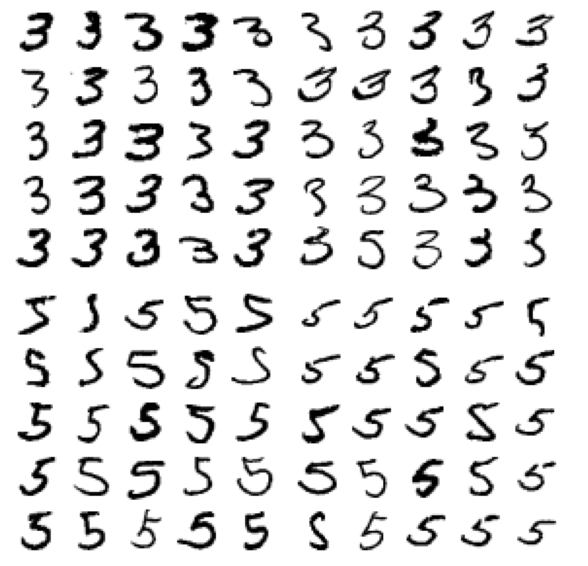 3 3 3 3 3 3 3 3 3 3
3 3 3 3 3 3 3 3 3 3
3 3 3 3 3 3 3 3 3 3
3 3 3 3 3 3 3 3 3 3
3 3 3 3 3 3 5 3 3 3
5 5 5 5 5 5 5 5 5 5
5 5 5 5 5 5 5 5 5 5
5 5 5 5 5 5 5 5 5 5
5 5 5 5 5 5 5 5 5 5
5 5 5 5 5 5 5 5 5 5